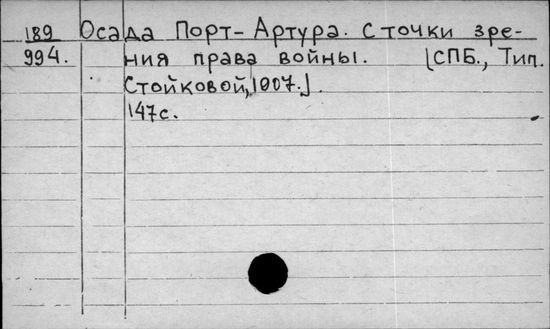 189 Осада Порт-Артура. С точки зре-
994. ния права войны. [СПБ., Тип.
Стойковой, 1907.].
147с.